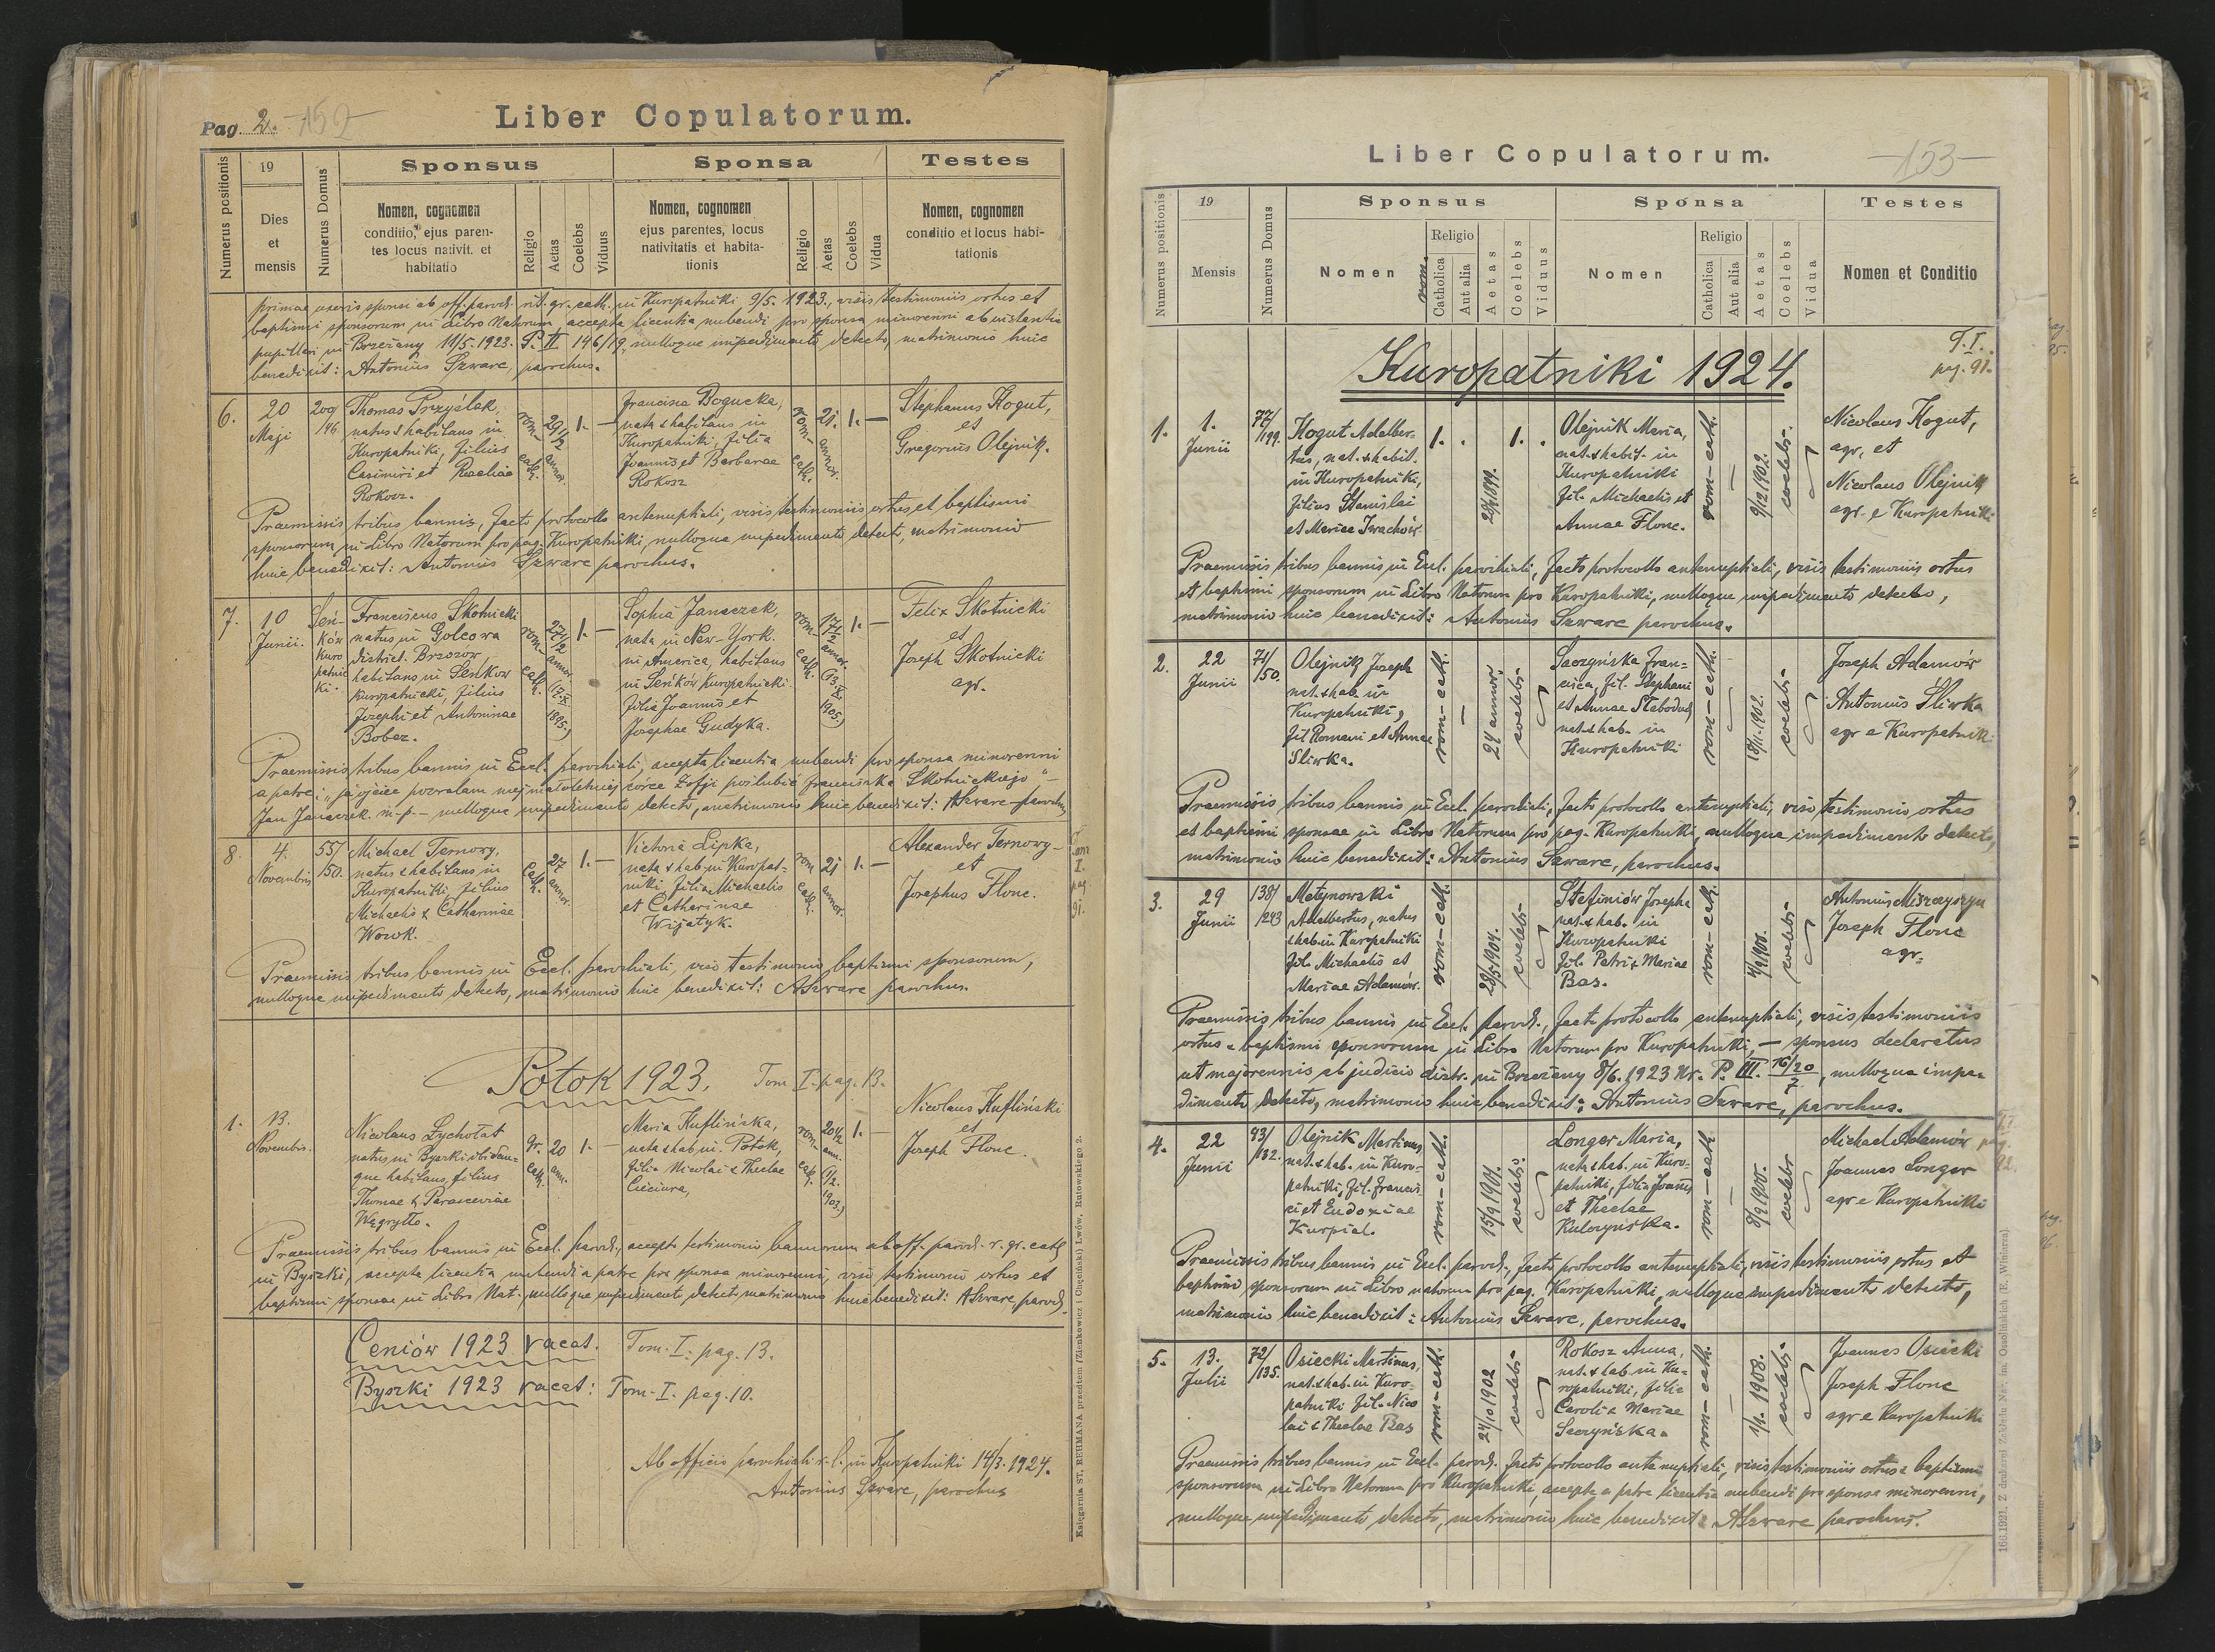 Pag. 2. 152
Liber Copulatorum.
Numerus positionis
19
Dies
et
mensis
Numerus Domus
Sponsus
Nomen, cognomen
conditio, ejus paren-
tes locus nativit. et
habitatio
Religio
Aetas
Coelebs
Viduus
Sponsa
Nomen, cognomen
ejus parentes, locus
nativitatis et habita-
tionis
Religio
Aetas
Coelebs
Vidua
Testes
Nomen, cognomen
conditio et locus habi-
tationis
primae uxoris sponsi ab off. paroch. rit. gr. cath. in Kuropatniki 9/5. 1923., visis testimoniis ortus et
baptismi sponsorum in Libro Natorum, accepta licentia nubendi pro sponsa minorenni ab instantia
pupillari in Brzeżany 11/5. 1923. P. II 146/19, nulloque impedimento detecto, matrimonio huic
benedixit: Antonius Szwarc, parochus.
6.
20
Maji
209
146
Thomas Przyślak,
natus & habitans in
Kuropatniki, filius
Casimiri et Rosaliae
Rokosz.
rom-
cath.
29 1/2
annor.
1.
—
Francisca Bogucka,
nata & habitans in
Kuropatniki, filia
Joannis et Barbarae
Rokosz
rom-
cath.
21.
annor.
1.
—
Stephanus Kogut,
et
Gregorius Olejnik.
Praemissis tribus bannis, facto protocollo antenuptiali, visis testimoniis ortus et baptismi
sponsorum in Libro Natorum pro pag. Kuropatniki, nulloque impedimento detecto, matrimonio
huic benedixit: Antonius Szwarc parochus.
7.
10
Junii.
Seń-
ków
Kuro
patnic
ki.
Franciscus Skotnicki
natus in Golcowa
district. Brzozów,
habitans in Seńkow
Kuropatnicki, filius
Josephi et Antoninae
Bober.
rom-
cath.
27 1/2
annor.
1895.)
1.
—
Sophia Janaczek,
nata in New-York.
in America, habitans
in Seńków Kuropatnicki.
filia Joannis et
Josephae Gudyka.
rom-
cath.
17 1/2
annor.
1905.)
1.
—
Felix Skotnicki
et
Joseph Skotnicki
agr.
Praemissis tribus bannis in Eccl. parochiali, accepta licentia nubendi pro sponsa minorenni
a patre: „ja ojciec pozwalam mej małoletniej córce Zofji poślubić Franciszka Skotnickiego" —
Jan Janaczek m.p. — nulloque impedimento detecto, matrimonio huic benedixit: ASzwarc parochus
8.
4.
Novembris
55/
150.
Michael Ternowy,
natus & habitans in
Kuropatniki, filius
Michaelis & Catharinae
Wowk.
cath.
27
annor.
1.
—
Victoria Lipka,
nata & hab. in Kuropat-
niki, filia Michaelis
et Catharinae
Wijatyk.
rom
cath.
21
annor.
1.
—
Alexander Ternowy
et
Josephus Flonc.
Tom
I.
pag.
91.
Praemissis tribus bannis in Eccl. parochiali, viso testimonio baptismi sponsorum,
nulloque impedimento detecto, matrimonio huic benedixit: ASzwarc parochus.
Potok 1923. Tom. I. pag. 13.
1.
13.
Novembris.
Nicolaus Łychołat
natus in Byszki ibidem-
que habitans, filius
Thomae & Parasceviae
Węgryłło.
gr.
cath.
20
ann.
1.
—
Maria Kuflińska,
nata & hab. in Potok,
filia Nicolai & Theclae
Cieciura,
rom-
cath.
20 1/2
ann.
1903.)
1.
—
Nicolaus Kufliński
et
Joseph Flonc.
Praemissis tribus bannis in Eccl. paroch., accepto testimonio bannorum ab off. paroch. r. gr. cath
in Byszki, accepta licentia nubendi a patre pro sponsa minorenni, viso testimonio ortus et
baptismi sponsae in Libro Nat., nulloque impedimento detecto, matrimonio huic benedixit: ASzwarc, paroch.
Ceniów 1923 vacat. Tom. I. pag. 13.
Byszki 1923 vacat: Tom. I. pag. 10.
Ab officio parochiali r. l. in Kuropatniki 14/3. 1924.
Antonius Szwarc, parochus
Księgarnia ST. REHMANA przedtem (Zienkowicz i Chęciński) Lwów, Rutowskiego 2.
153
Liber Copulatorum.
Numerus positionis
19
Mensis
Numerus Domus
Sponsus
Nomen
Religio
rom.
Catholica
Aut alia
Aetas
Coelebs
Viduus
Sponsa
Nomen
Religio
Catholica
Aut alia
Aetas
Coelebs
Vidua
Testes
Nomen et Conditio
Kuropatniki 1924.
T. I.
pag. 91.
1.
1.
Junii
77/
199.
Kogut Adalber-
tus, nat. & habit.
in Kuropatniki,
filius Stanislai
et Mariae Iwachów
1.
1.
Olejnik Maria,
nat. & habit. in
Kuropatniki
fil. Michaelis et
Annae Flonc.
rom-cath.
—
9/12 1902.
coelebs.
Nicolaus Kogut,
agr. et
Nicolaus Olejnik
agr. e Kuropatniki
Praemissis tribus bannis in Eccl. parochiali, facto protocollo antenuptiali, visis testimoniis ortus
et baptismi sponsorum in Libro Natorum pro Kuropatniki, nulloque impedimento detecto,
matrimonio huic benedixit: Antonius Szwarc parochus.
2.
22
Junii
71/
50.
Olejnik Joseph
nat. & hab. in
Kuropatniki,
fil Romani et Annae
Śliwka.
rom-cath.
—
21 annor.
coelebs-
Saczyńska Fran-
cisca, fil. Stephani
et Annae Słaboduch
nat. & hab. in
Kuropatniki
rom-cath.
18/11. 1902.
coelebs-
Joseph Adamów
Antonius Śliwka
agr e Kuropatnik.
Praemissis tribus bannis in Eccl. parochiali, facto protocollo antenuptiali, viso testimonio ortus
et baptismi sponsae in Libro Natorum pro pag. Kuropatniki, nulloque impedimento detecto,
matrimonio huic benedixit: Antonius Szwarc, parochus.
3.
29
Junii
138/
1243
Matejnowski
Adalbertus, natus
& hab. in Kuropatniki
fil. Michaelis et
Mariae Adamów.
rom-cath.
28/5 1901.
coelebs-
Stefiniów Josepha
nat. & hab. in
Kuropatniki
fil. Petri & Mariae
Bas.
rom-cath.
4/9 1900.
coelebs-
Antonius Miszczyszyn
Joseph Flonc
agr.
Praemissis tribus bannis in Eccl. paroch., facto protocollo antenuptiali, visis testimoniis
ortus & baptismi sponsorum in Libro Natorum pro Kuropatniki, — sponsus declaratus
ut majorennis ab judicio distr. in Brzeżany 8/6. 1923 Nr. P. III. 16/20/7, nulloque impe-
dimento detecto, matrimonio huic benedixit: Antonius Szwarc, parochus.
4.
22
Junii
93/
132.
Olejnik Martinus,
nat. & hab. in Kuro-
patniki, fil. Francis
ci et Eudoxiae
Kurpial.
rom-cath.
15/9 1901.
coelebs.
Longer Maria,
nata & hab. in Kuro-
patniki, filia Joannis
et Theclae
Kulczyńska.
rom-cath
—
8/9 1900.
coelebs
Michael Adamów
Joannes Longer
agr e Kuropatniki
T. I.
pag.
92.
Praemissis tribus bannis in Eccl. paroch., facto protocollo antenuptiali, visis testimoniis ortus et
baptismi sponsorum in Libro natorum pro pag. Kuropatniki, nulloque impedimento detecto,
matrimonio huic benedixit: Antonius Szwarc, parochus.
5.
13.
Julii
72/
135.
Osiecki Martinus,
nat. & hab. in Kuro
patniki fil. Nico
lai & Theclae Bas
rom-cath.
24/10 1902
coelebs-
Rokosz Anna,
nat. & hab. in Ku-
ropatniki, filia
Caroli & Mariae
Saczyńska.
rom-cath.
—
1/1. 1908.
coelebs-
Joannes Osiecki
Joseph Flonc
agr e Kuropatniki
Praemissis tribus bannis in Eccl. paroch. facto protocollo antenuptiali, visis testimoniis ortus & baptismi
sponsorum in Libro Natorum pro Kuropatniki, accepta a patre licentia nubendi pro sponsa minorenni,
nulloque impedimento detecto, matrimonio huic benedixit: ASzwarc parochus.
166.1921. Z drukarni Zakładu Nar. im. Ossolińskich (E. Winiarza)